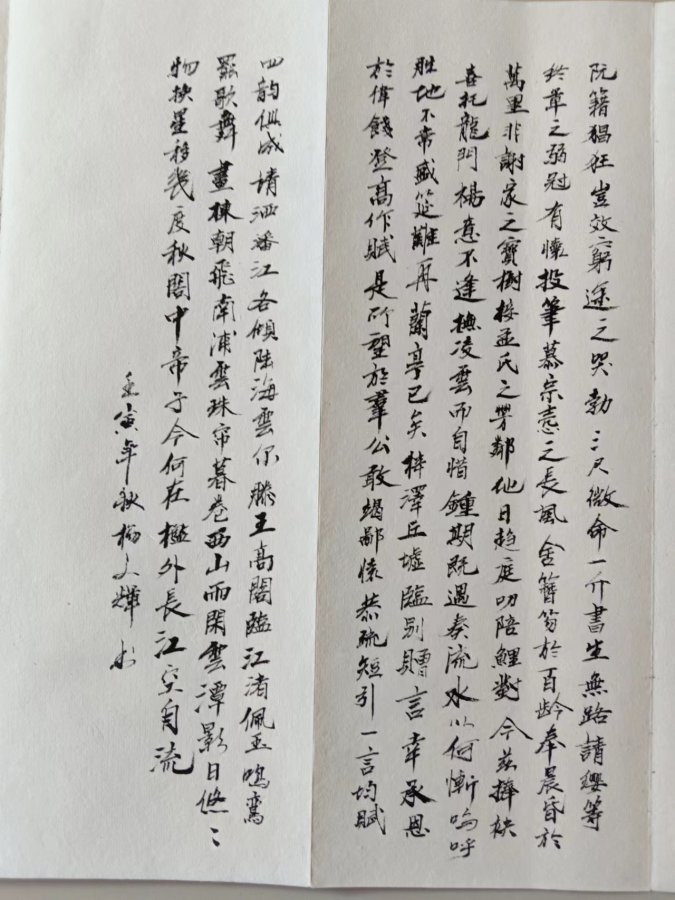 阮籍猖狂豈效窮途之哭勃三尺微命一介書生無路請纓等
終軍之弱冠有懷投筆慕宗愨之長風舍簪笏於百齡奉晨昏於
萬里非謝家之寶樹接孟氏之芳鄰他日趨庭叨陪鯉對今茲捧袂
喜托龍門楊意不逢撫凌雲而自惜鍾期既遇奏流水以何慚嗚呼
胜地不常盛筵難再蘭亭已矣梓澤丘墟臨別贈言幸承恩
於偉餞登高作賦是所望於羣公敢竭鄙懷恭疏短引一言均賦
四韵俱成請洒潘江各傾陆海雲尔滕王高閣臨江渚佩玉鳴鸞
罷歌舞畫棟朝飛南浦雲珠帘暮卷西山雨閑雲潭影日悠〻
物换星移幾度秋閣中帝子今何在檻外長江空自流
壬寅年秋文輝书